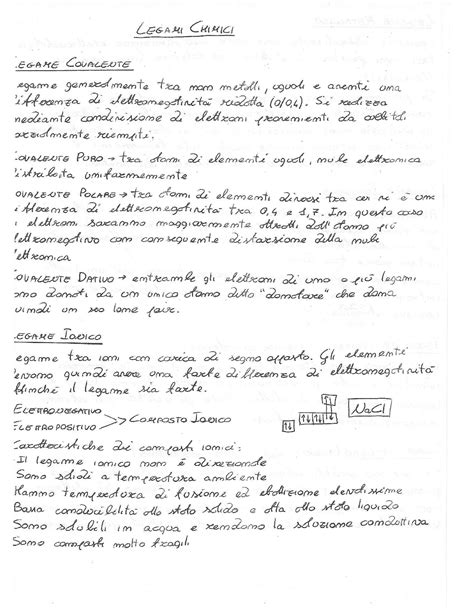 LEGAMI CHIMICI
EGAME COVALENTE
egame generalmente tra non metalli, uguali e aventi una
ifferenza di elettronegatività ridotta (0/0,4). Si realizza
mediante condivisione di elettroni provenienti da orbitali
parzialmente riempiti.
OVALENTE PURO → tra atomi di elementi uguali, nube elettronica
istribuita uniformemente
OVALENTE POLARE → tra atomi di elementi diversi tra cui vi è una
ifferenza di elettronegatività tra 0,4 e 1,7. In questo caso
i elettroni saranno maggiormente attratti dall'atomo più
lettronegativo con conseguente distorsione della nube
lettronica
OVALENTE DATIVO → entrambe gli elettroni di uno o più legami
ono donati da un unico atomo detto "donatore" che dona
uindi un suo lone pair.
EGAME IONICO
egame tra ioni con carica di segno opposto. Gli elementi
evono quindi avere una forte differenza di elettronegatività
ffinché il legame sia forte.
ELETTRONEGATIVO
ELETTROPOSITIVO > COMPOSTO IONICO
NaCl
Caratteristiche dei composti ionici:
Il legame ionico non è direzionale
Sono solidi a temperatura ambiente
Hanno temperatura di fusione ed ebollizione elevatissime
Bassa conducibilità allo stato solido e alta allo stato liquido
Sono solubili in acqua e rendono la soluzione conduttiva
Sono composti molto fragili